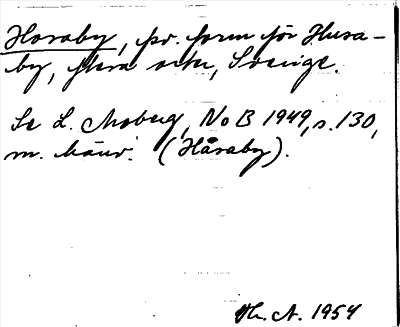 Horaby, är. form för Husa-
by, flera orter, Sverige.
Se L. Moberg, NoB 1949, s. 130,
m. hänv. (Håraby).
Th. A. 1954